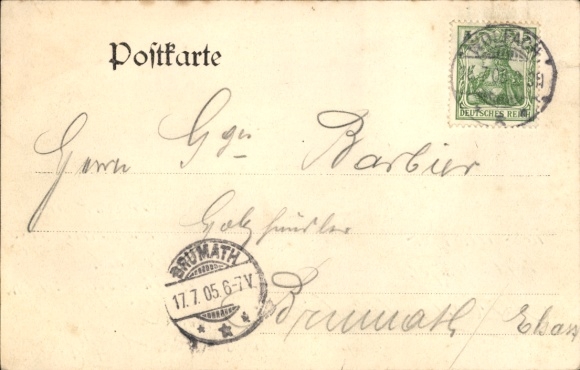 Postkarte
WOLFACH
DEUTSCHES REICH
Herrn Ggs. Barbier
Holzhändler
BRUMATH
17.7.05.6-7V.
Brumath / Elsass